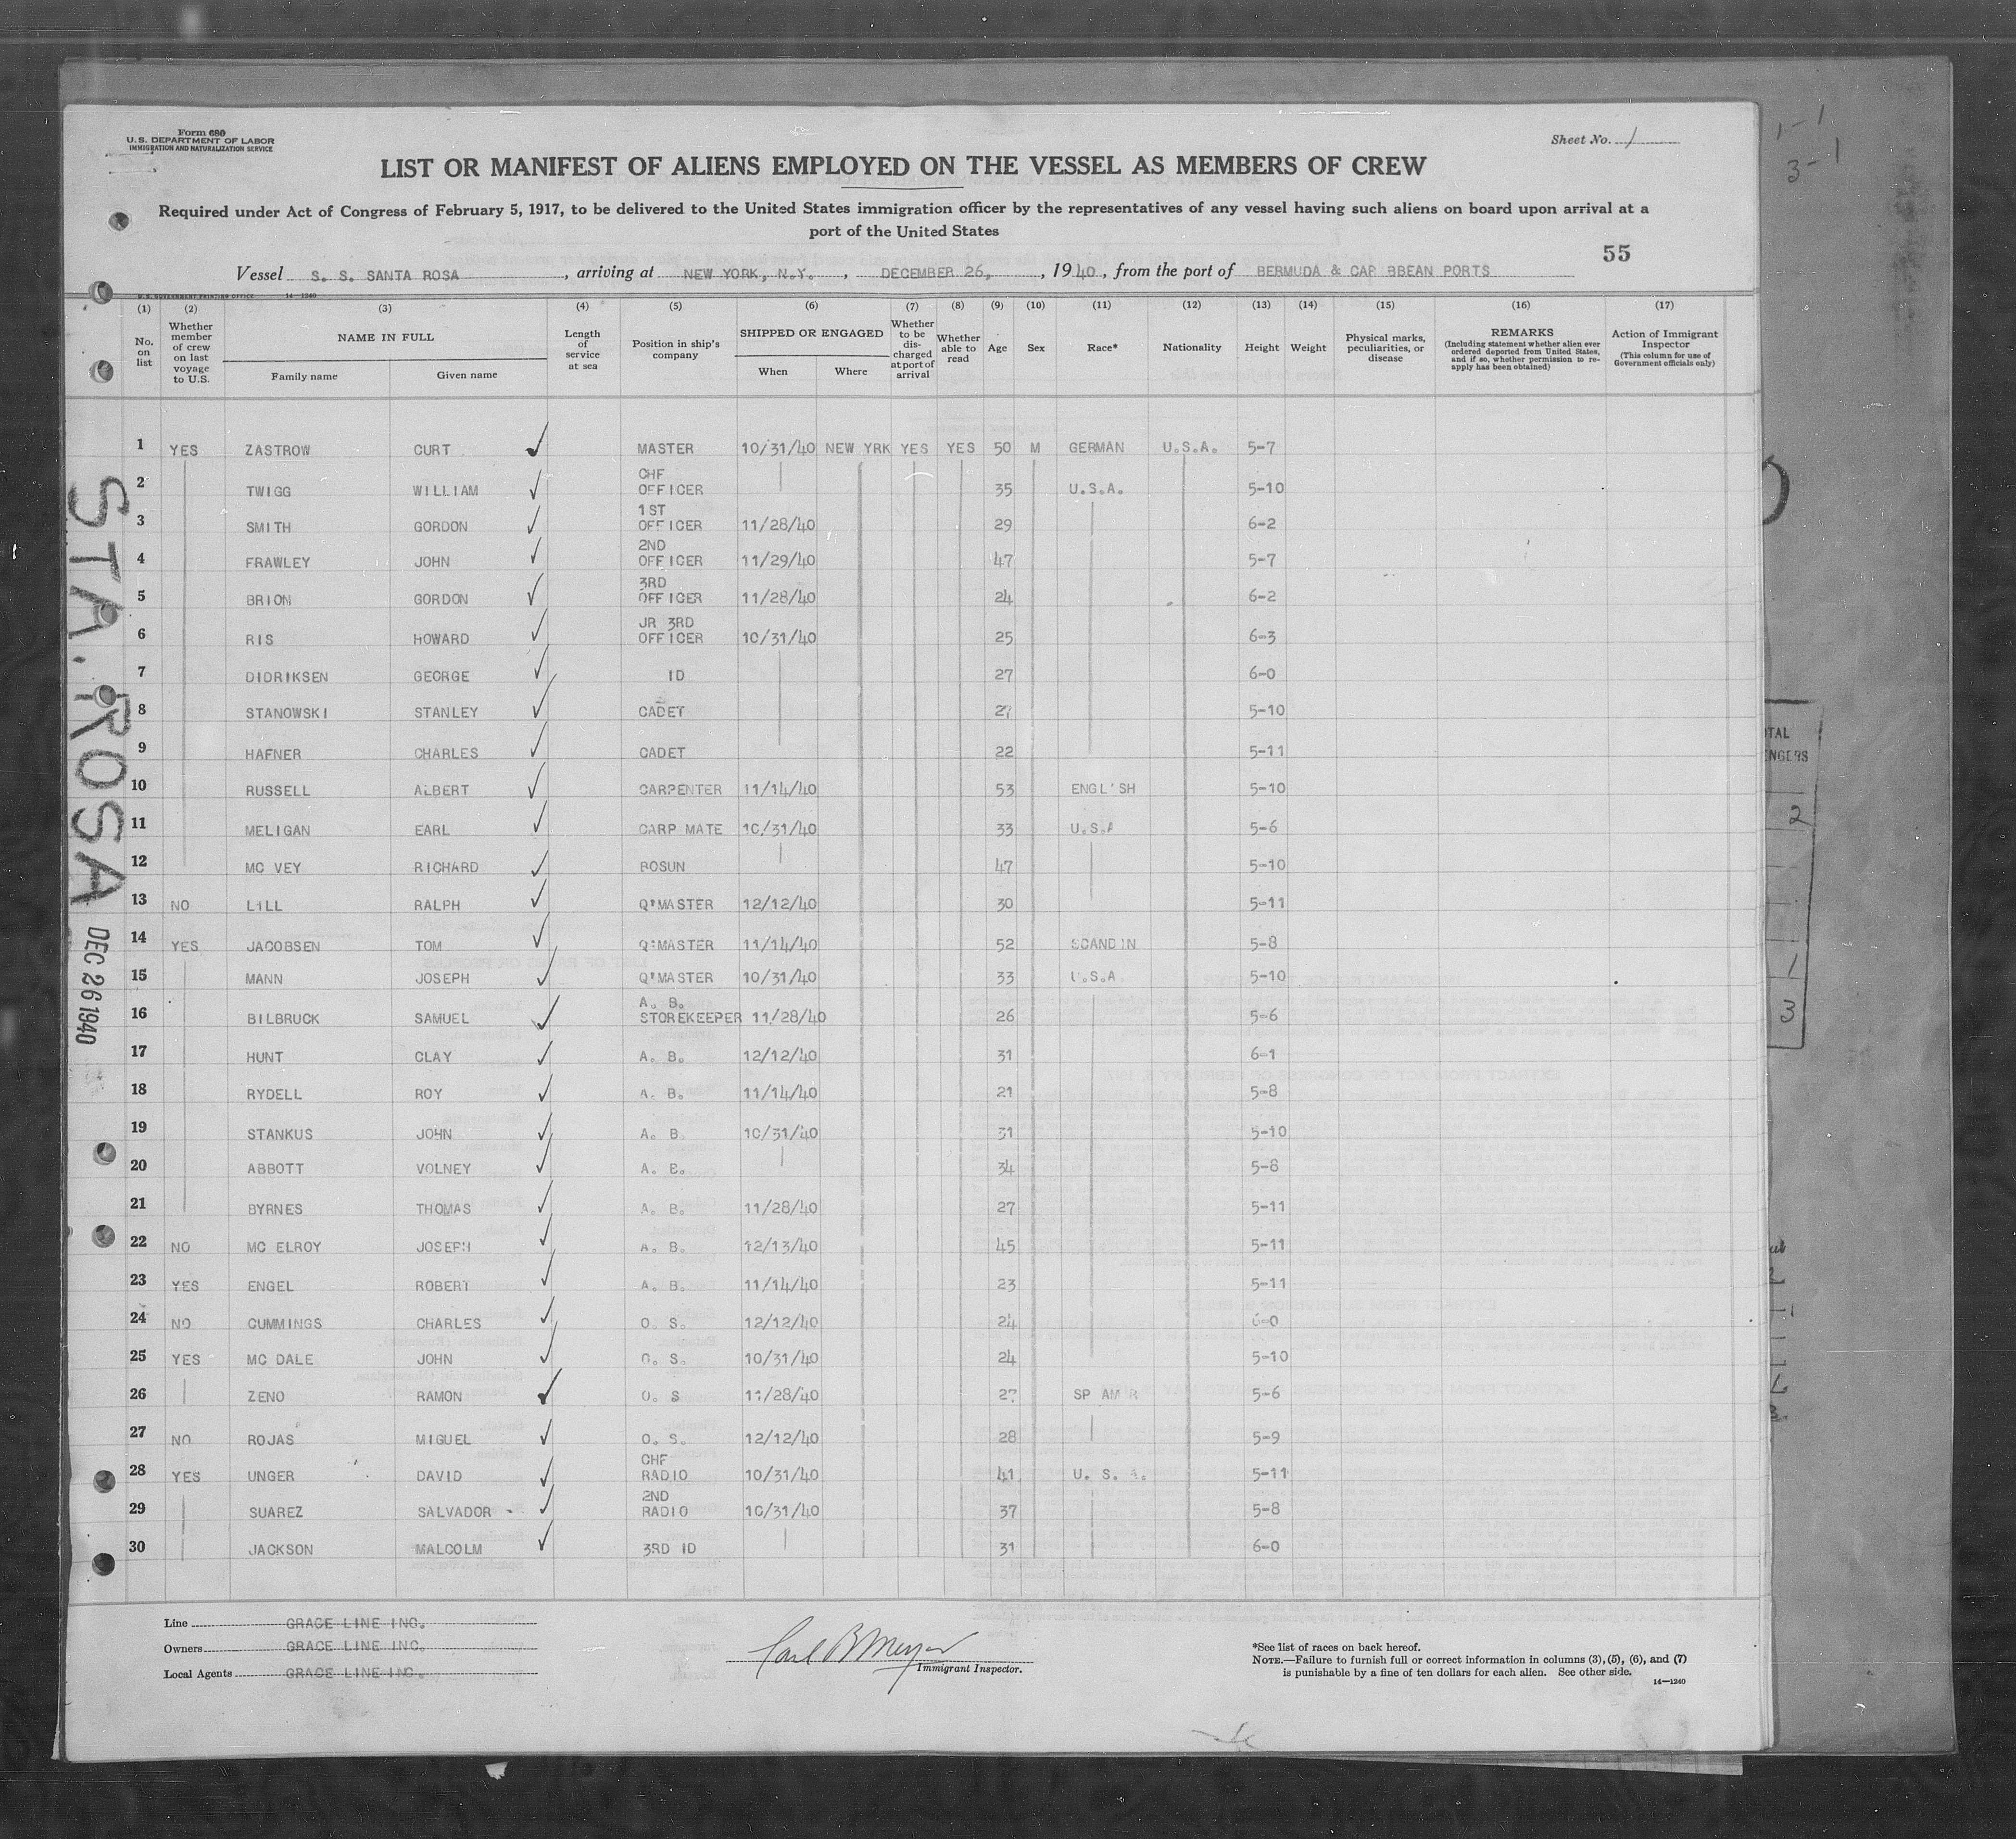 Form 680
U.S. DEPARTMENT OF LABOR
IMMIGRATION AND NATURALIZATION SERVICE
Sheet No. 1
LIST OR MANIFEST OF ALIENS EMPLOYED ON THE VESSEL AS MEMBERS OF CREW
Required under Act of Congress of February 5, 1917, to be delivered to the United States immigration officer by the representatives of any vessel having such aliens on board upon arrival at a
port of the United States
55
Vessel S. S. SANTA ROSA, arriving at NEW YORK, N.Y., DECEMBER 26, 1940, from the port of BERMUDA & CAR BBEAN PORTS
U. S. GOVERNMENT PRINTING OFFICE 14—1240
(1) (2) (3) (4) (5) (6) (7) (8) (9) (10) (11) (12) (13) (14) (15) (16) (17)
No. on list
Whether member of crew on last voyage to U.S.
NAME IN FULL
Family name Given name
Length of service at sea
Position in ship's company
SHIPPED OR ENGAGED
When Where
Whether to be discharged at port of arrival
Whether able to read
Age
Sex
Race*
Nationality
Height
Weight
Physical marks, peculiarities, or disease
REMARKS
(Including statement whether alien ever ordered deported from United States, and if so, whether permission to re-apply has been obtained)
Action of Immigrant Inspector
(This column for use of Government officials only)
1 YES ZASTROW CURT MASTER 10/31/40 NEW YRK YES YES 50 M GERMAN U.S.A. 5-7
2 TWIGG WILLIAM CHF OFFICER 35 U.S.A. 5-10
3 SMITH GORDON 1ST OFFICER 11/28/40 29 6-2
4 FRAWLEY JOHN 2ND OFFICER 11/29/40 47 5-7
5 BRION GORDON 3RD OFFICER 11/28/40 24 6-2
6 RIS HOWARD JR 3RD OFFICER 10/31/40 25 6-3
7 DIDRIKSEN GEORGE ID 27 6-0
8 STANOWSKI STANLEY CADET 27 5-10
9 HAFNER CHARLES CADET 22 5-11
10 RUSSELL ALBERT CARPENTER 11/14/40 53 ENGL'SH 5-10
11 MELIGAN EARL CARP MATE 10/31/40 33 U.S.A 5-6
12 MC VEY RICHARD BOSUN 47 5-10
13 NO LILL RALPH Q'MASTER 12/12/40 30 5-11
14 YES JACOBSEN TOM Q'MASTER 11/14/40 52 SCANDIN 5-8
15 MANN JOSEPH Q'MASTER 10/31/40 33 U.S.A. 5-10
16 BILBRUCK SAMUEL A. B. STOREKEEPER 11/28/40 26 5-6
17 HUNT CLAY A. B. 12/12/40 31 6-1
18 RYDELL ROY A. B. 11/14/40 21 5-8
19 STANKUS JOHN A. B. 10/31/40 31 5-10
20 ABBOTT VOLNEY A. B. 34 5-8
21 BYRNES THOMAS A. B. 11/28/40 27 5-11
22 NO MC ELROY JOSEPH A. B. 12/13/40 45 5-11
23 YES ENGEL ROBERT A. B. 11/14/40 23 5-11
24 NO CUMMINGS CHARLES O. S. 12/12/40 24 6-0
25 YES MC DALE JOHN O. S. 10/31/40 24 5-10
26 ZENO RAMON O. S 11/28/40 27 SP AM R 5-6
27 NO ROJAS MIGUEL O. S. 12/12/40 28 5-9
28 YES UNGER DAVID CHF RADIO 10/31/40 41 U. S. A. 5-11
29 SUAREZ SALVADOR 2ND RADIO 10/31/40 37 5-8
30 JACKSON MALCOLM 3RD ID 31 6-0
STA. ROSA
DEC 26 1940
Line GRACE LINE INC.
Owners GRACE LINE INC.
Local Agents GRACE LINE INC.
Carl B Meyer
Immigrant Inspector.
*See list of races on back hereof.
NOTE.—Failure to furnish full or correct information in columns (3), (5), (6), and (7)
is punishable by a fine of ten dollars for each alien. See other side.
14—1240
1-1
3-1
2
1
3